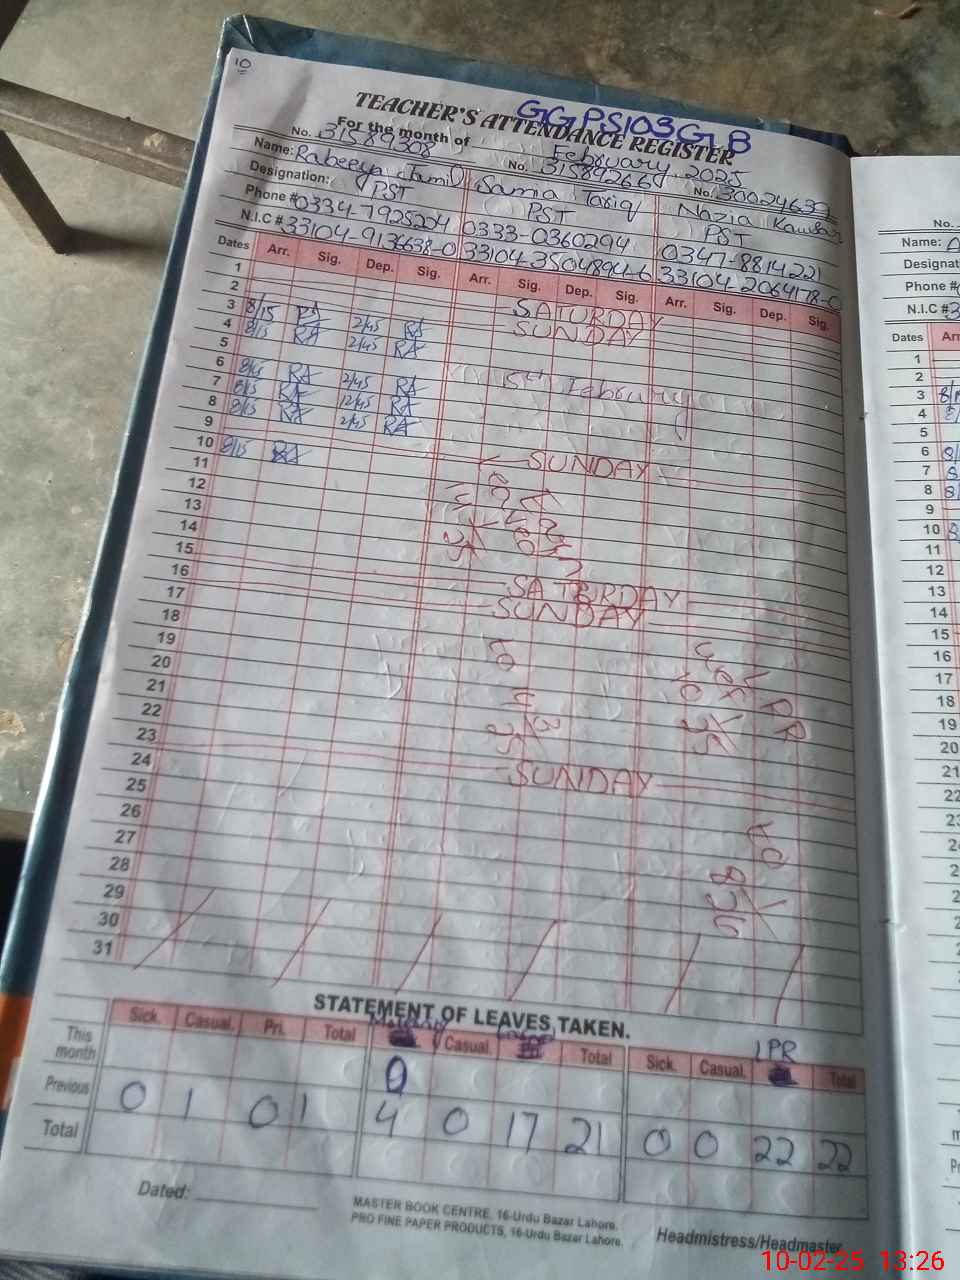 10
GGPS103GB
TEACHER'S ATTENDANCE REGISTER
For the month of February, 2025
No. 31589308 No. 31589266 No. 30024639
Name: Rabeeya Jamil Samia Tariq Nazia Kausar
Designation: PST PST PST
Phone # 0334-7925204 0333-0360294 0347-8814221
N.I.C # 33104-9136638-0 33104-3504894-6 33104-2064178-0
Dates Arr. Sig. Dep. Sig. Arr. Sig. Dep. Sig. Arr. Sig. Dep. Sig.
1 SATURDAY
2 SUNDAY
3 8/15 RA 2/45 RA
4 8/15 RA 2/45 RA
5 5th February
6 8/15 RA 2/45 RA
7 8/15 RA 12/45 RA
8 8/15 RA 2/45 RA
9 SUNDAY
10 8/15 RA
11
12
13
14
15 SATURDAY
16 SUNDAY
17
18
19
20
21
22
23 SUNDAY
24
25
26
27
28
29
30
31
STATEMENT OF LEAVES TAKEN.
Sick. Casual. Pri. Total Casual. Total Sick. Casual. LPR Total
This month
Previous 0 1 0 1 4 0 17 21 0 0 22 22
Total
Dated:
MASTER BOOK CENTRE, 16-Urdu Bazar Lahore.
PRO FINE PAPER PRODUCTS, 16-Urdu Bazar Lahore.
Headmistress/Headmaster
No.
Name:
Designati
Phone #
N.I.C #3
Dates Arr
1
2
3
4
5
6
7
8
9
10
11
12
13
14
15
16
17
18
19
20
21
10-02-25 13:26